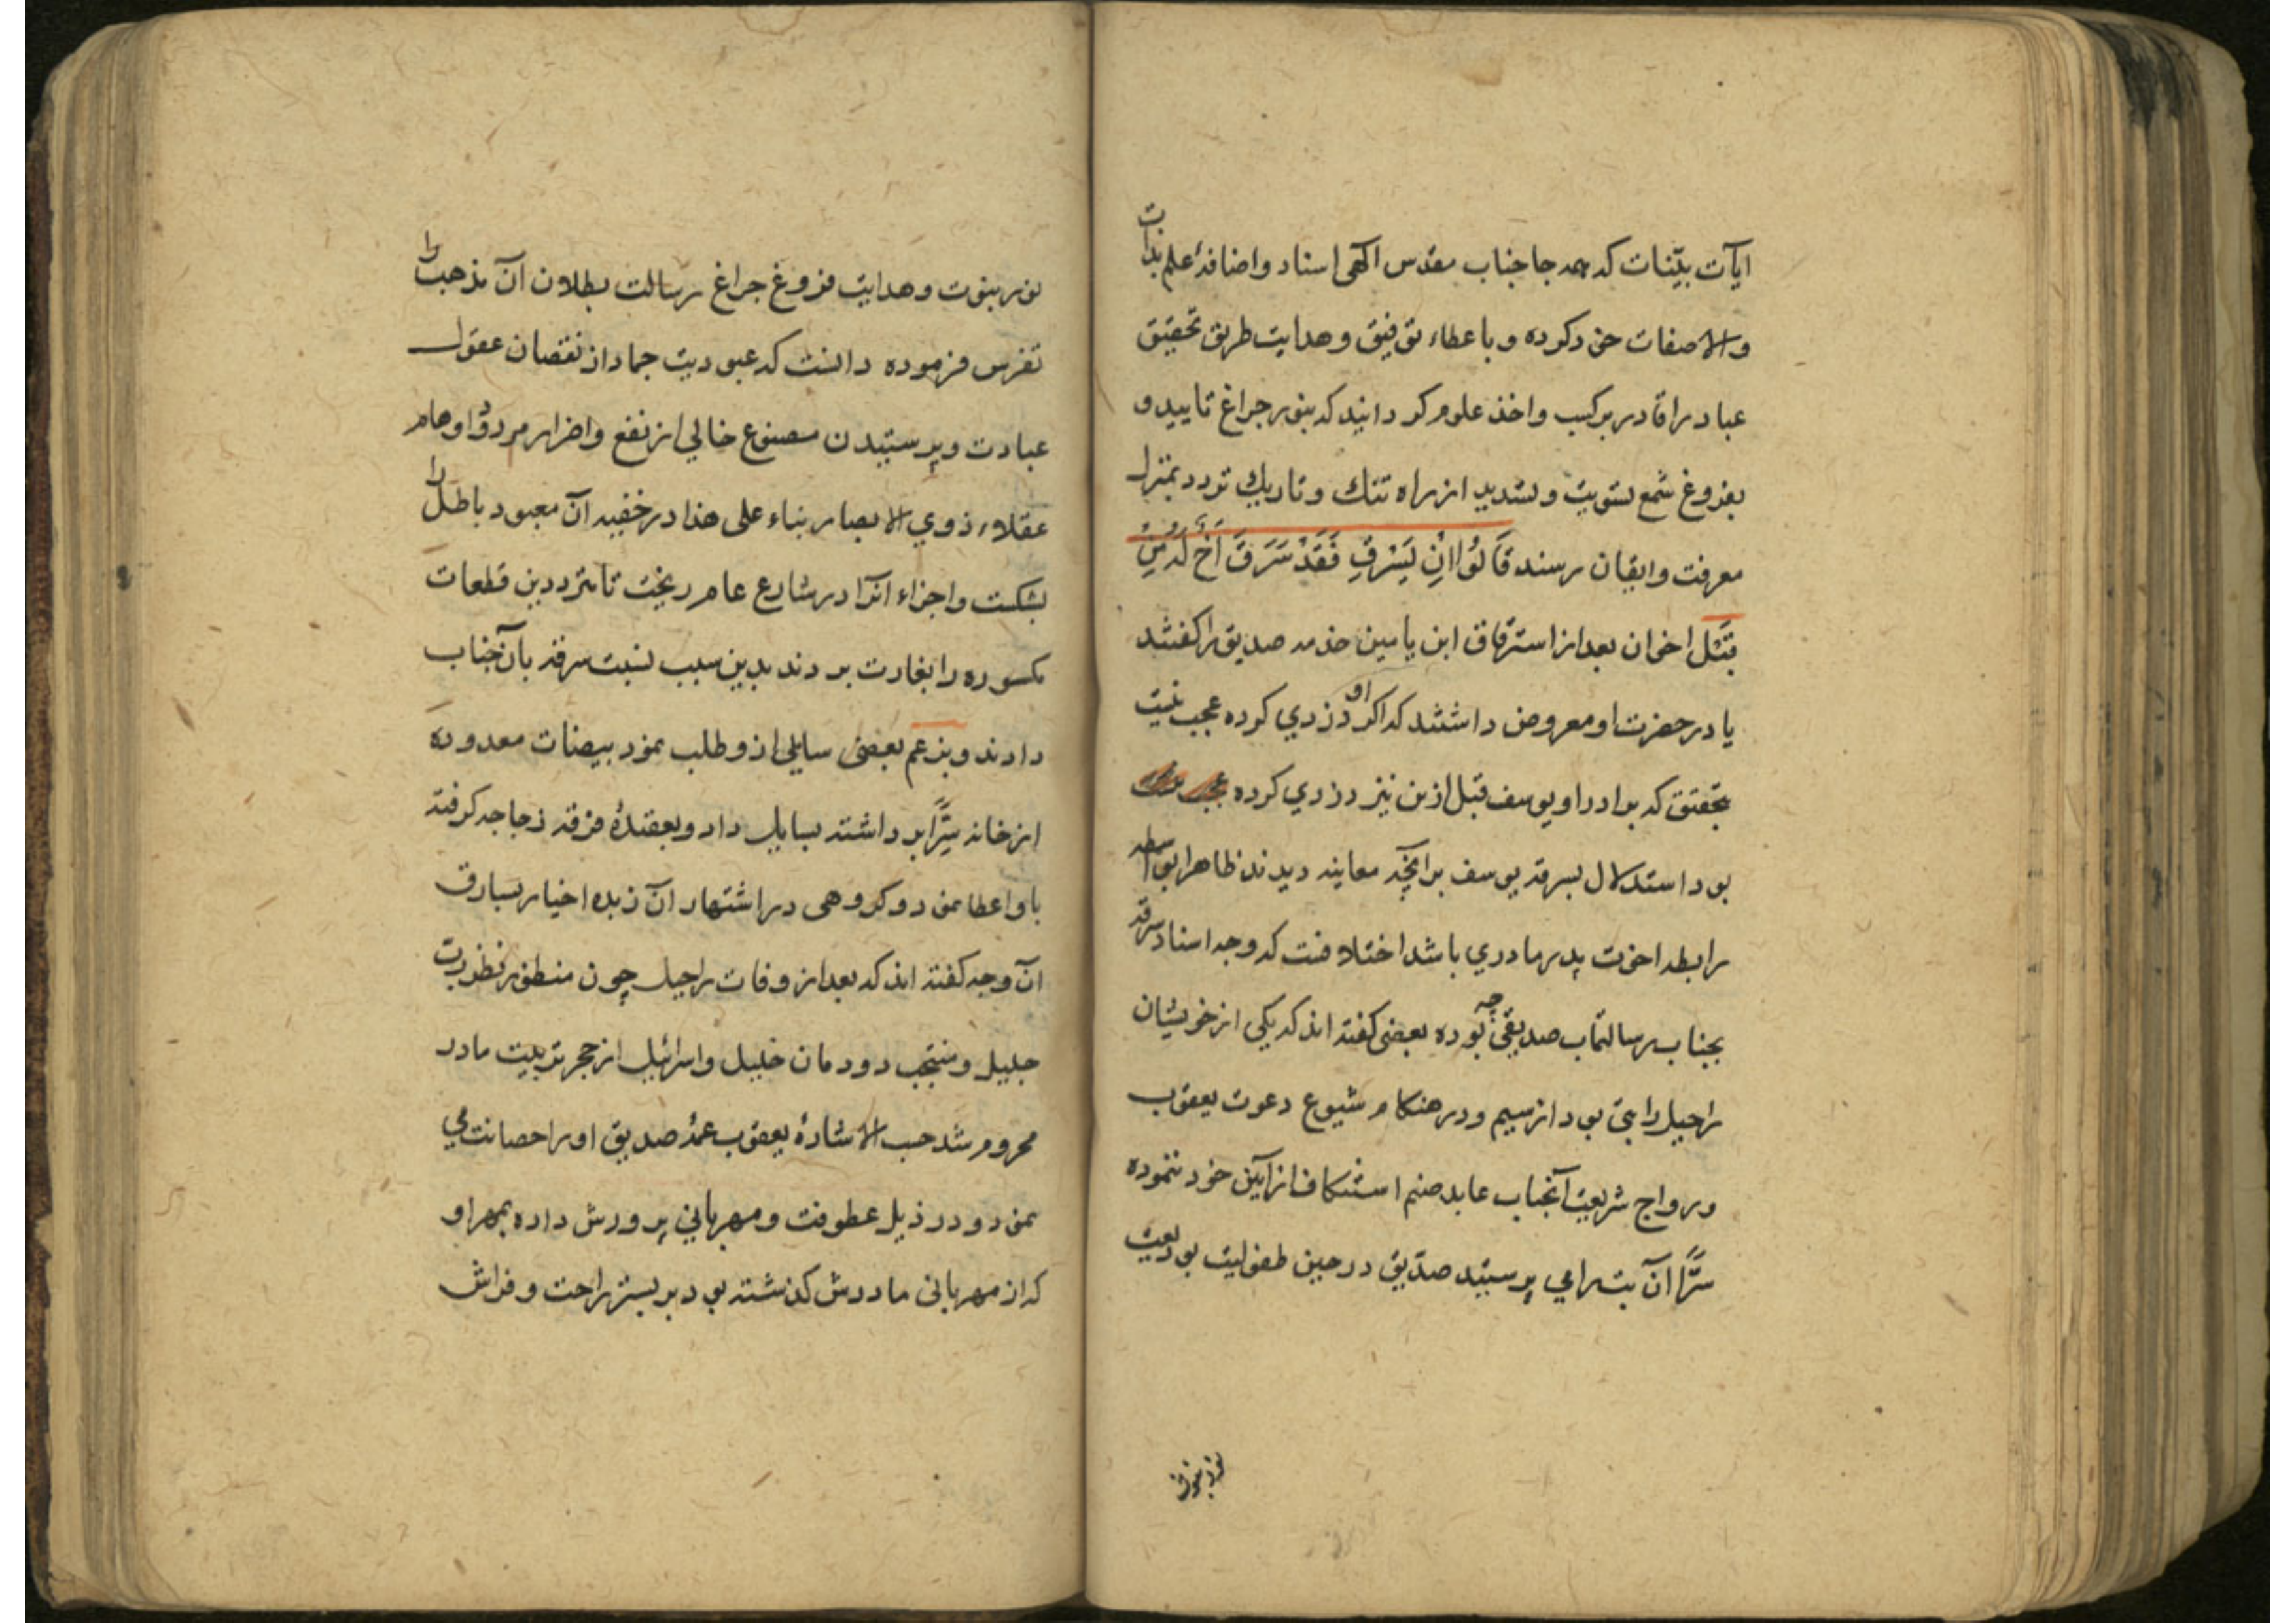 ایآت بیّنات که همه جا جناب مقدس آلهی اسناد و اضافهٔ علم بذات
و الاصفات خود کرده و با عطاء توفیق و هدایت طریق تحقیق
عباد را قادر بر کسب و اخذ علوم کردانید که بنور جراغ تایید و
بفروغ شمع تسویت و تسدید از راه تنک و تاریک تردد بمنزل
معرفت و ایقان رسند قَالُوا اِنْ يَسْرِقْ فَقَدْ سَرَقَ اَخٌ لَهُ مِنْ
قَبْل اخوان بعد از استرقاق ابن یامین خدمه صدیق را کفتند
یا در حضرت او معروض داشتند که اکر او دزدي کرده عجب نیست
بتحقیق که برادر او یوسف قبل ازین نیز دزدي کرده
بود استدلال بسرقه یوسف بر آنچه معاینه دیدند ظاهرا بواسطه
رابطه اخوت پدر مادري باشد اختلافست که وجه اسناد سرقه
بجناب رسالتمآب صدیقی چه بوده بعضی کفته اند که یکی از خویشان
راحیل را بتی بود از سیم و در هنکام شیوع دعوت یعقوب
و رواج شریعت آنجناب عابد صنم استنکاف از آیین خود ننموده
سرًّا آن بت را می پرستید صدّیق در حین طفولیت بودیعت
نور نبوت
نور نبوت و هدایت فروغ جراغ رسالت بطلان آن مذهب را
تفرس فرموده دانست که عبودیت جماد از نقصان عقول
عبادت و پرستیدن مصنوع خالي از نفع و اضرار مردود اوهام
عقلاء ذوي الابصار بناء علی هذا در خفیه آن معبود باطل را
بشکست و اجزاء آنرا در شارع عام ریخت تا مترددین قطعات
مکسوره را بغارت بردند بدین سبب نسبت سرقه بآن جناب
دادند و بزعم بعضی سایلی ازو طلب نمود بیضات معدوده
از خانه سرًّا برداشته بسایل داد و بعقیدهٔ فرقه دجاجه کرفته
باو اعطا نمود و کروهی در اشتهار آن زبده اخیار بسارق
آن وجه کفته اند که بعد از وفات راحیل چون منظور نظر رب
جلیل و منتجب دودمان خلیل و اسرائیل از حجر تربیت مادر
محروم شد حسب الاشارهٔ یعقوب عمهٔ صدیق او را حضانت می
نمود و در ذیل عطوفت و مهرباني پرورش داده بمهر او
که از مهرباني مادرش کذشته بود بر بستر راحت و فراش